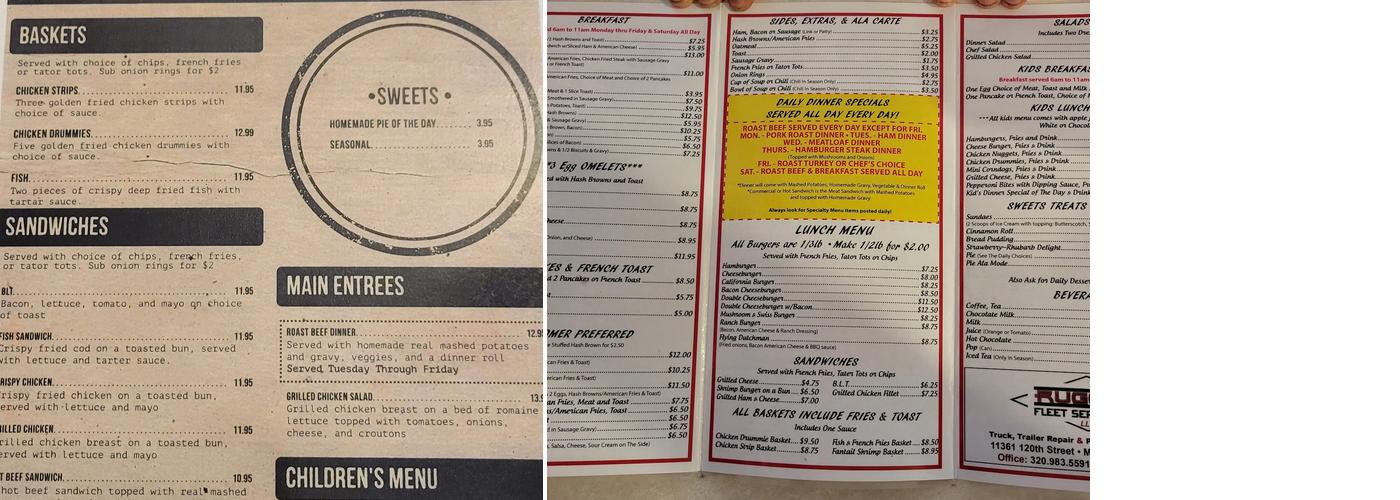 BASKETS
Served with choice of chips, french fries
or tator tots. Sub onion rings for $2
CHICKEN STRIPS 11.95
Three golden fried chicken strips with
choice of sauce.
CHICKEN DRUMMIES 12.99
Five golden fried chicken drummies with
choice of sauce.
FISH 11.95
Two pieces of crispy deep fried fish with
tartar sauce.
SANDWICHES
Served with choice of chips, french fries,
or tator tots. Sub onion rings for $2
BLT 11.95
Bacon, lettuce, tomato, and mayo on choice
of toast
FISH SANDWICH 11.95
Crispy fried cod on a toasted bun, served
with lettuce and tarter sauce.
RISPY CHICKEN 11.95
rispy fried chicken on a toasted bun,
erved with lettuce and mayo
ILLED CHICKEN 11.95
rilled chicken breast on a toasted bun,
erved with lettuce and mayo
T BEEF SANDWICH 10.95
hot beef sandwich topped with real mashed
•SWEETS•
HOMEMADE PIE OF THE DAY 3.95
SEASONAL 3.95
MAIN ENTREES
ROAST BEEF DINNER 12.95
Served with homemade real mashed potatoes
and gravy, veggies, and a dinner roll
Served Tuesday Through Friday
GRILLED CHICKEN SALAD 13.9
Grilled chicken breast on a bed of romaine
lettuce topped with tomatoes, onions,
cheese, and croutons
CHILDREN'S MENU
BREAKFAST
d 6am to 11am Monday thru Friday & Saturday All Day
/2 Hash Browns and Toast) $7.25
dwich w/Sliced Ham & American Cheese) $5.95
$13.00
American Fries, Chicken Fried Steak with Sausage Gravy
or French Toast)
$11.00
American Fries, Choice of Meat and Choice of 2 Pancakes
Meat & 1 Slice Toast) $3.95
Smothered in Sausage Gravy) $7.50
Potatoes, Toast) $9.75
Hash Browns) $12.50
& Sausage Gravy) $5.95
Brown, Bacon) $10.25
$5.75
Slices of Bacon) $6.50
wns & 1/2 Biscuits & Gravy) $7.25
3 Egg OMELETS***
ed with Hash Browns and Toast
$8.75
$8.75
heese $8.75
Onion, and Cheese) $8.95
$11.95
ES & FRENCH TOAST
d 2 Pancakes or French Toast $8.50
$5.75
$5.00
OMER PREFERRED
e Stuffed Hash Brown for $2.50
$12.00
can Fries & Toast)
$10.25
rican Fries & Toast)
$11.50
2 Eggs, Hash Browns/American Fries & Toast)
an Fries, Meat and Toast $7.75
s/American Fries, Toast $6.50
$6.50
d in Sausage Gravy) $6.75
$6.50
, Salsa, Cheese, Sour Cream on The Side)
SIDES, EXTRAS, & ALA CARTE
Ham, Bacon or Sausage (Link or Patty) $3.25
Hash Browns/American Fries $2.75
Oatmeal $5.25
Toast $2.00
Sausage Gravy $1.75
French Fries or Tator Tots $3.50
Onion Rings $4.95
Cup of Soup or Chili (Chili in Season Only) $2.75
Bowl of Soup or Chili (Chili in Season Only) $3.50
DAILY DINNER SPECIALS
SERVED ALL DAY EVERY DAY!
ROAST BEEF SERVED EVERY DAY EXCEPT FOR FRI.
MON. - PORK ROAST DINNER • TUES. - HAM DINNER
WED. - MEATLOAF DINNER
THURS. - HAMBURGER STEAK DINNER
(Topped with Mushrooms and Onions)
FRI. - ROAST TURKEY OR CHEF'S CHOICE
SAT. - ROAST BEEF & BREAKFAST SERVED ALL DAY
*Dinner will come with Mashed Potatoes, Homemade Gravy, Vegetable & Dinner Roll
*Commercial or Hot Sandwich is the Meat Sandwich with Mashed Potatoes
and topped with Homemade Gravy
Always look for Specialty Menu Items posted daily!
LUNCH MENU
All Burgers are 1/3lb • Make 1/2lb for $2.00
Served with French Fries, Tator Tots or Chips
Hamburger $7.25
Cheeseburger $8.00
California Burger $8.25
Bacon Cheeseburger $8.50
Double Cheeseburger $11.50
Double Cheeseburger w/Bacon $12.50
Mushroom & Swiss Burger $8.25
Ranch Burger $8.75
(Bacon, American Cheese & Ranch Dressing)
Flying Dutchman $8.75
(Fried onions, Bacon American Cheese & BBQ sauce)
SANDWICHES
Served with French Fries, Tater Tots or Chips
Grilled Cheese $4.75 B.L.T. $6.25
Shrimp Burger on a Bun $6.50 Grilled Chicken Fillet $7.25
Grilled Ham & Cheese $7.00
ALL BASKETS INCLUDE FRIES & TOAST
Includes One Sauce
Chicken Drummie Basket $9.50 Fish & French Fries Basket $8.50
Chicken Strip Basket $8.75 Fantail Shrimp Basket $8.95
SALADS
Includes Two Dre
Dinner Salad
Chef Salad
Grilled Chicken Salad
KIDS BREAKFAS
Breakfast served 6am to 11am
One Egg Choice of Meat, Toast and Milk
One Pancake or French Toast, Choice of M
KIDS LUNCH
***All kids menu comes with apple j
White or Chocol
Hamburgers, Fries and Drink
Cheese Burger, Fries & Drink
Chicken Nuggets, Fries & Drink
Chicken Drummies, Fries & Drink
Mini Corndogs, Fries & Drink
Grilled Cheese, Fries & Drink
Pepperoni Bites with Dipping Sauce, Fr
Kid's Dinner Special of The Day & Drink
SWEETS TREATS
Sundaes
(2 Scoops of Ice Cream with topping: Butterscotch,
Cinnamon Roll
Bread Pudding
Strawberry-Rhubarb Delight
Pie (See The Daily Choices)
Pie Ala Mode
Also Ask for Daily Desse
BEVERA
Coffee, Tea
Chocolate Milk
Milk
Juice (Orange or Tomato)
Hot Chocolate
Pop (Can)
Iced Tea (Only in Season)
RUGG
FLEET SER
LL
Truck, Trailer Repair & P
11361 120th Street • M
Office: 320.983.5591